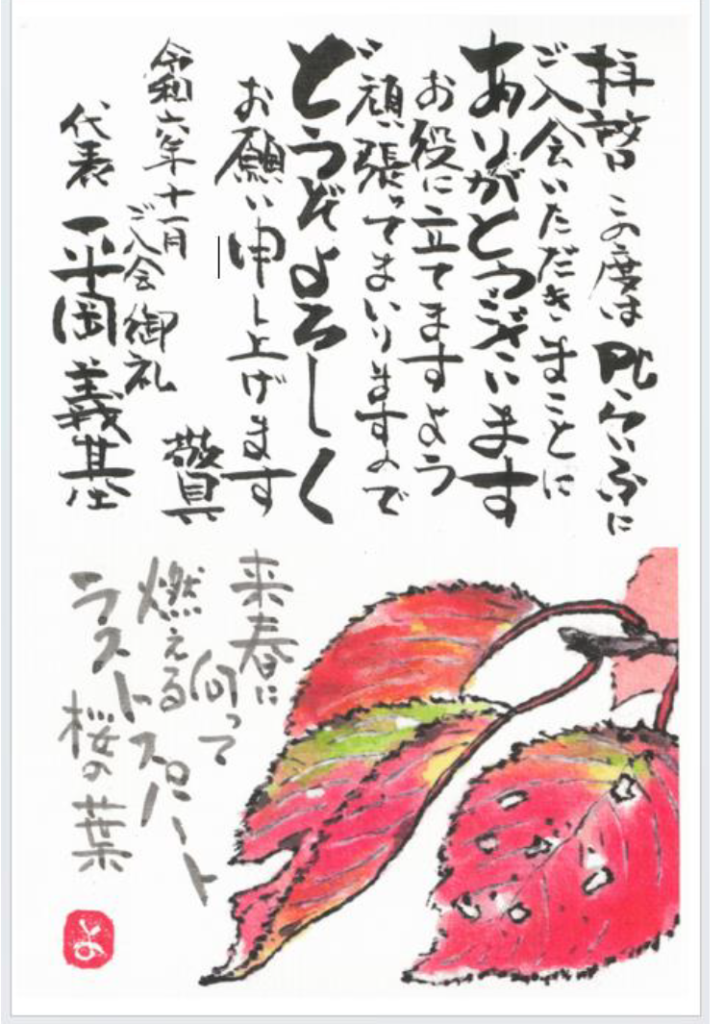 拝啓 この度は PCらいふに
ご入会いただきまことに
ありがとうございます
お役に立てますよう
ご頑張ってまいりますので
どうぞよろしく
お願い申し上げます
敬具
令和六年十一月
ご入会御礼
代表 平岡義基
来春に
向って
燃える
ラストスパート
桜の葉
よ